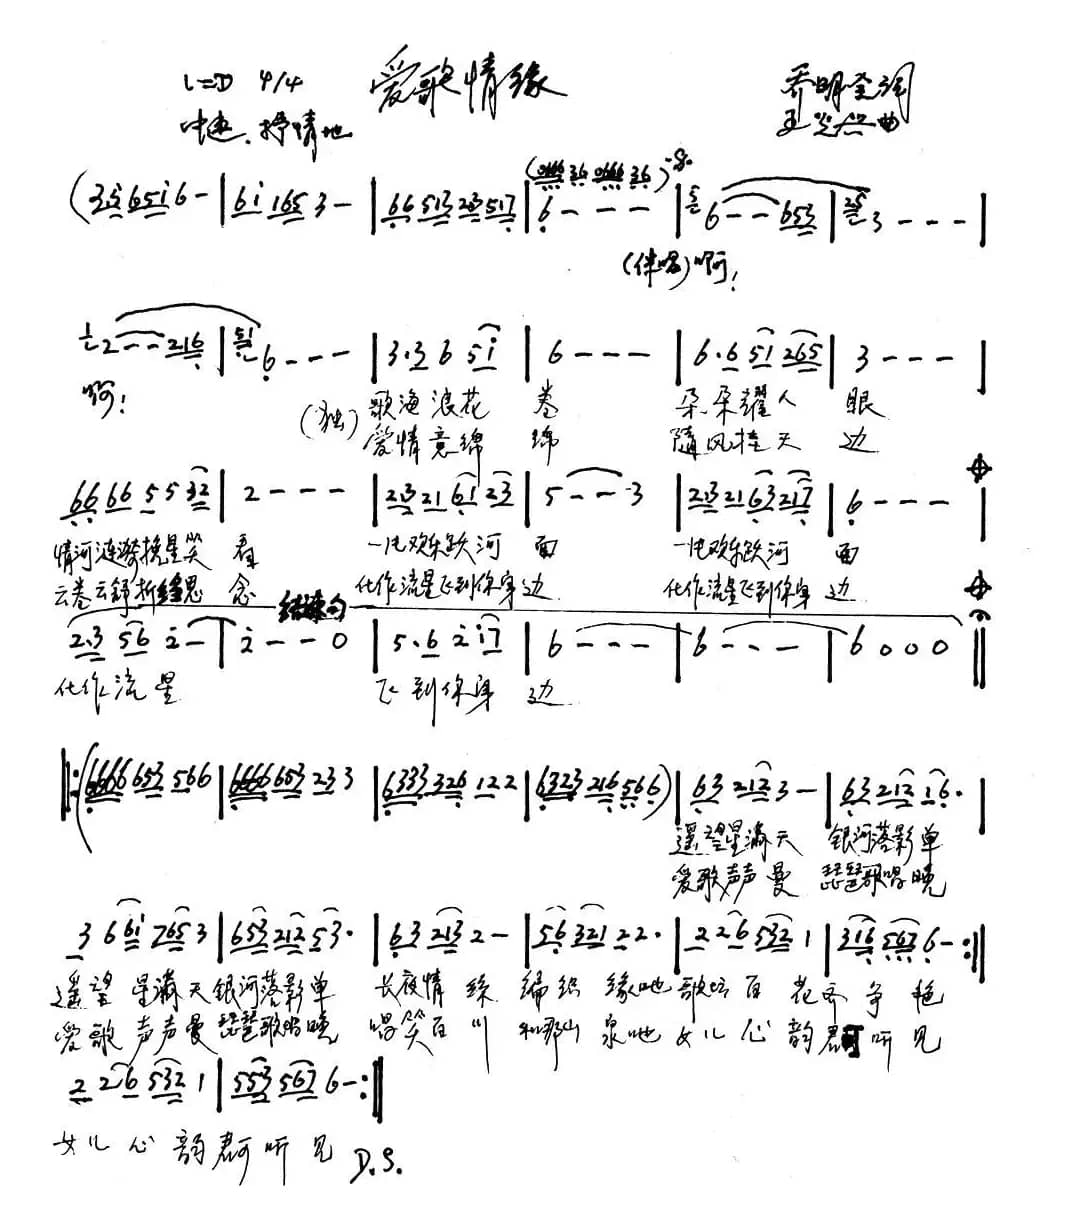 1=D 4/4 爱歌情缘 乔明圣词
中速.抒情地 王 曲
(35 6516 - | 61 165 3 - | 66 513 23 517 | 6 - - - (0666 36 0666 36) | 6 - - 653 | 3 - - - |
(伴唱)啊!
2 - - 216 | 6 - - - | 3·3 6 51 | 6 - - - | 6·6 51 265 | 3 - - - |
啊! (独) 歌海浪花 卷 朵朵耀人 眼
爱情意绵 绵 随风挂天 边
66 66 5 5 32 | 2 - - - | 23 21 61 23 | 5 - - 3 | 23 21 63 217 | 6 - - - |
情河涟漪挽星笑 看 欢乐跃河 面 欢乐跃河 面
云卷云舒折缝思 念 化作流星飞到你身边 化作流星飞到你身 边
结束句
2·3 56 2 - | 2 - - 0 | 5·6 2 17 | 6 - - - | 6 - - - | 6 0 0 0 ||
化作流星 飞到你身 边
||:(6666 653 566 | 6666 653 23 3 | 6333 326 122 | 6323 216 566) | 63 212 3 - | 63 212 16· |
遥望星满天 银河落影单
爱歌声声曼 琵琶歌唱晚
3 6 61 765 3 | 653 212 53· | 63 213 2 - | 56 321 22· | 2 26 532 1 | 316 567 6 - :||
遥望 星满天银河落影单 长夜情丝 编织 缘吔歌坛百 花齐争艳
爱歌 声声曼琵琶歌唱晚 唱笑百川 和那山 泉吔女儿心 韵君可听见
2 26 532 1 | 553 567 6 - :||
女儿心 韵君可听见 D.S.